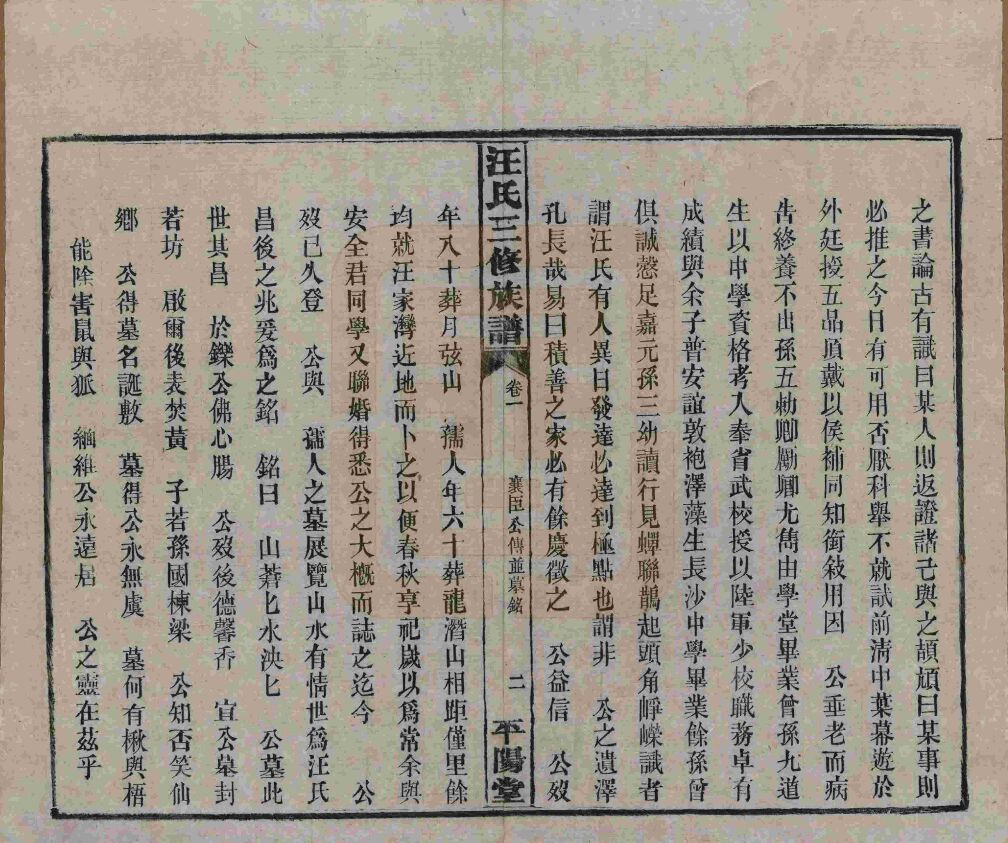 之書論古有識目某人則返證諸己與之頡頏曰某事則
必推之今日有可用否厭科舉不就試前淸中葉幕遊於
外廷授五品頂戴以侯補同知銜敍用因　公垂老而病
告終養不出孫五勅卿勵卿尤雋由學堂畢業會孫九道
生以中學資格考入奉省武校授以陸軍少校職務卓有
成績與余子普安誼敦袍澤藻生長沙中學畢業餘孫曾
俱誠慤足嘉元孫三幼讀行見蟬聯鵲起頭角崢嶸識者
謂汪氏有人異日發達必達到極點也謂非　公之遺澤
孔長哉易曰積善之家必有餘慶徵之　公益信　公歿
汪氏三修族譜
卷一
襄臣公傳並墓銘
二
平陽堂
年八十葬月弦山　孺人年六十葬龍潛山相距僅里餘
均就汪家灣近地而卜之以便春秋享祀嵗以爲常余與
安全君同學又聯婚得悉公之大概而誌之迄今　公
歿已久登　公與　孺人之墓展覽山水有情世爲汪氏
昌後之兆爰爲之銘　銘曰　山蒼匕水泱匕　公墓此
世其昌　於鑠公佛心腸　公歿後德馨香　宣公墓封
若坊　啟爾後表焚黃　子若孫國棟梁　公知否笑仙
鄉　公得墓名誕敷　墓得公永無虞　墓何有楸與梧
能除害鼠與狐　綱維公永遠居　公之靈在茲乎